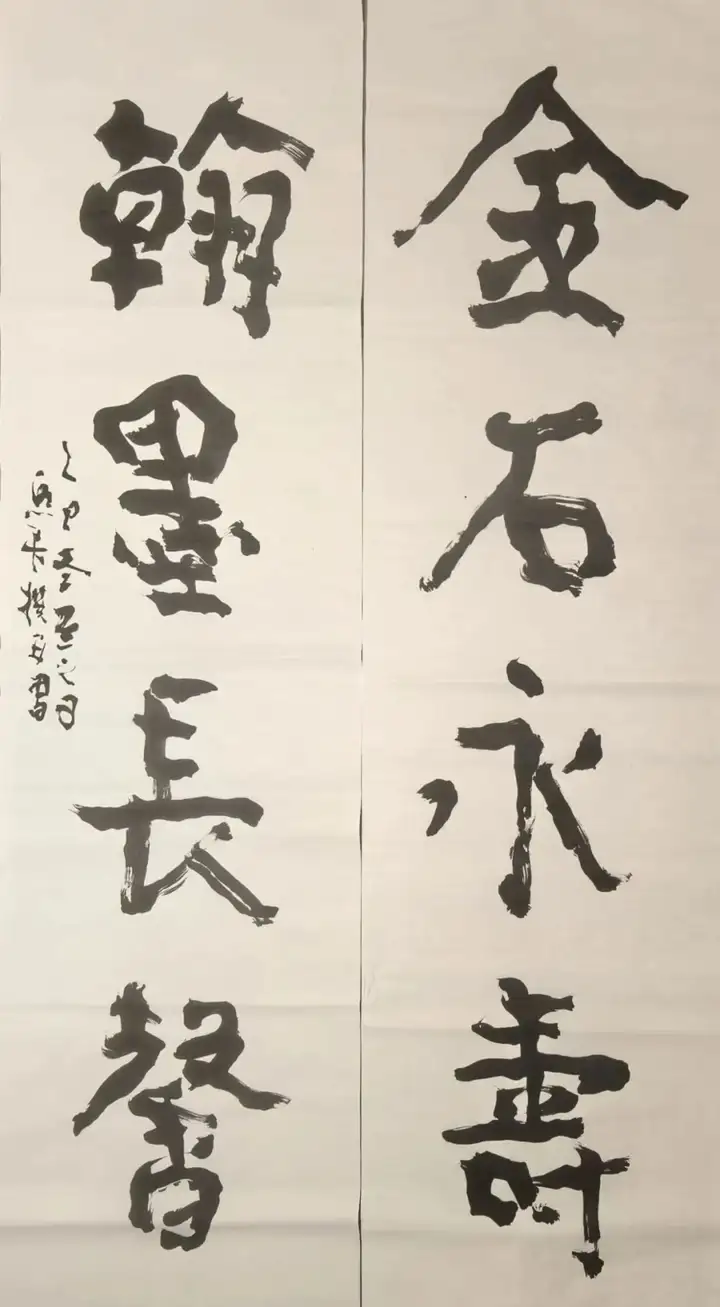 金石永壽
翰墨長馨
乙巳冬至之日
撰并書